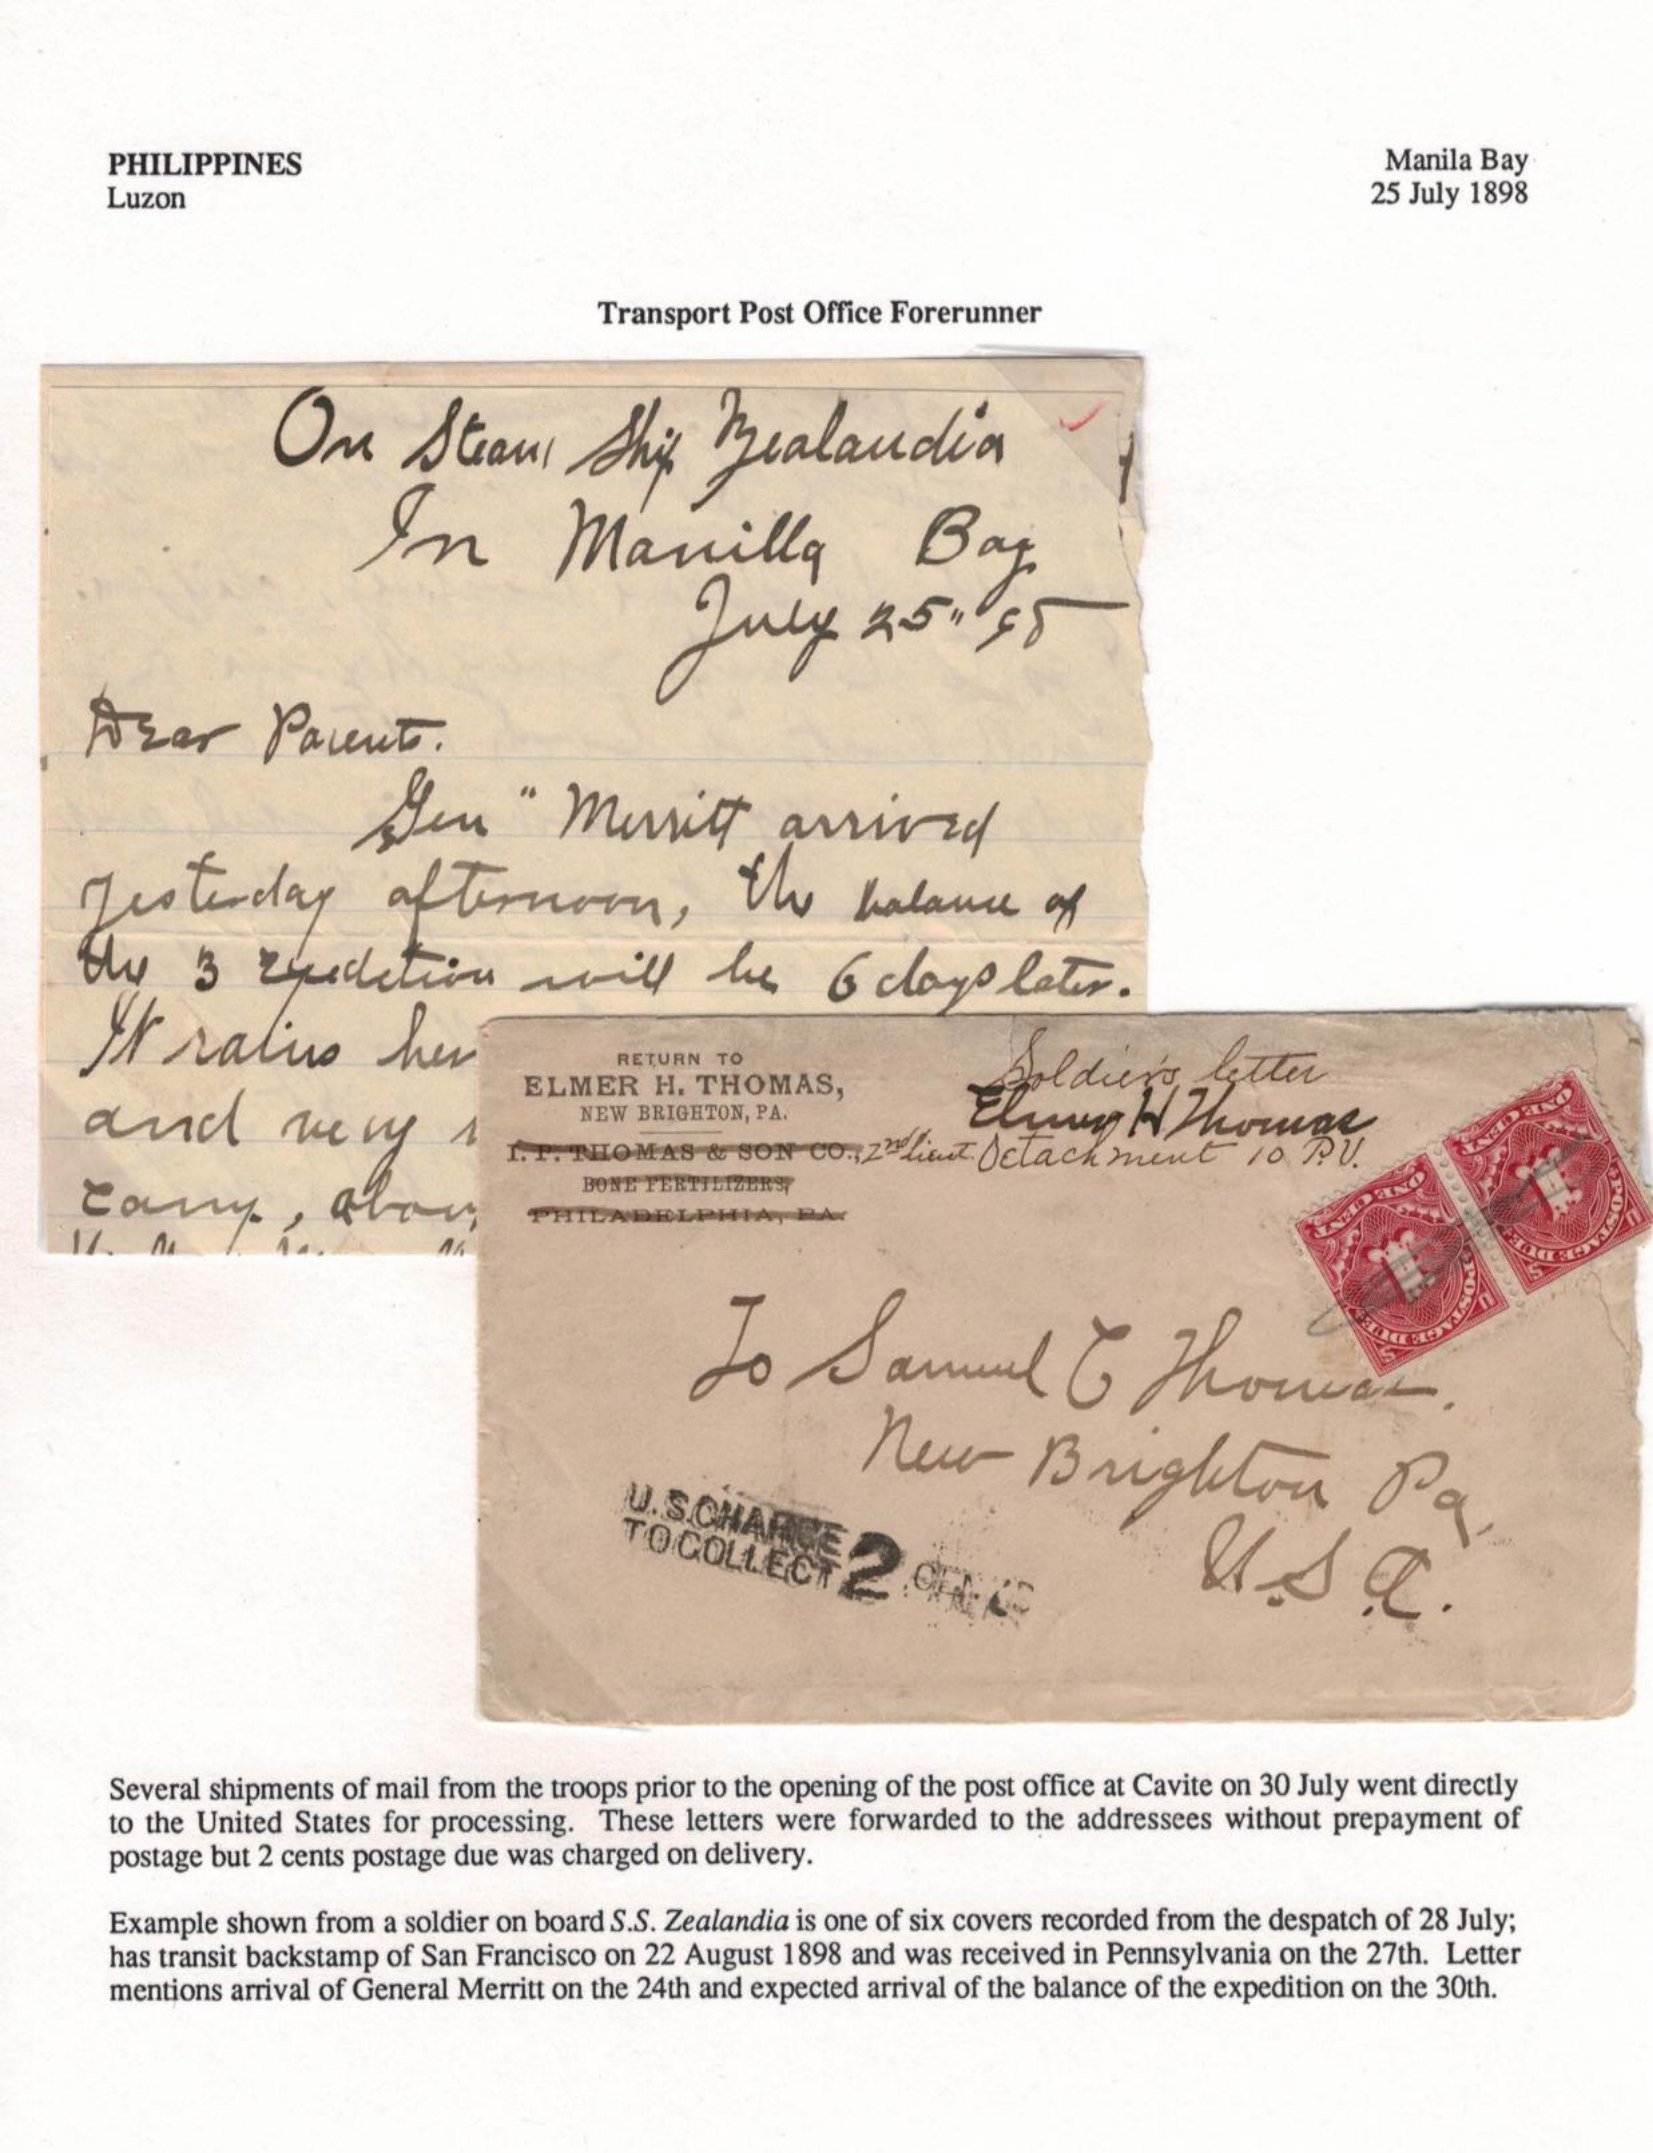 PHILIPPINES
Luzon
Manila Bay
25 July 1898
Transport Post Office Forerunner
On Steam Ship Zealandia
In Manilla Bay
July 25" 98
Dear Parents.
Gen " Merritt arrived
yesterday afternoon, the balance of
the 3 expedetion will be 6 days later.
It rains her
and very
camp, abou
RETURN TO
ELMER H. THOMAS,
NEW BRIGHTON, PA.
I. P. THOMAS & SON CO.,
BONE FERTILIZERS,
PHILADELPHIA, PA.
Soldier's letter
Elmer H Thomas
2nd lieut. Detachment 10 P.V.
ONE CENT
U S POSTAGE DUE
ONE CENT
U S POSTAGE DUE
To Samuel C Thomas.
New Brighton Pa,
U.S.A.
U.S.CHARGE
TO COLLECT 2 CENTS
Several shipments of mail from the troops prior to the opening of the post office at Cavite on 30 July went directly
to the United States for processing. These letters were forwarded to the addressees without prepayment of
postage but 2 cents postage due was charged on delivery.
Example shown from a soldier on board S.S. Zealandia is one of six covers recorded from the despatch of 28 July;
has transit backstamp of San Francisco on 22 August 1898 and was received in Pennsylvania on the 27th. Letter
mentions arrival of General Merritt on the 24th and expected arrival of the balance of the expedition on the 30th.